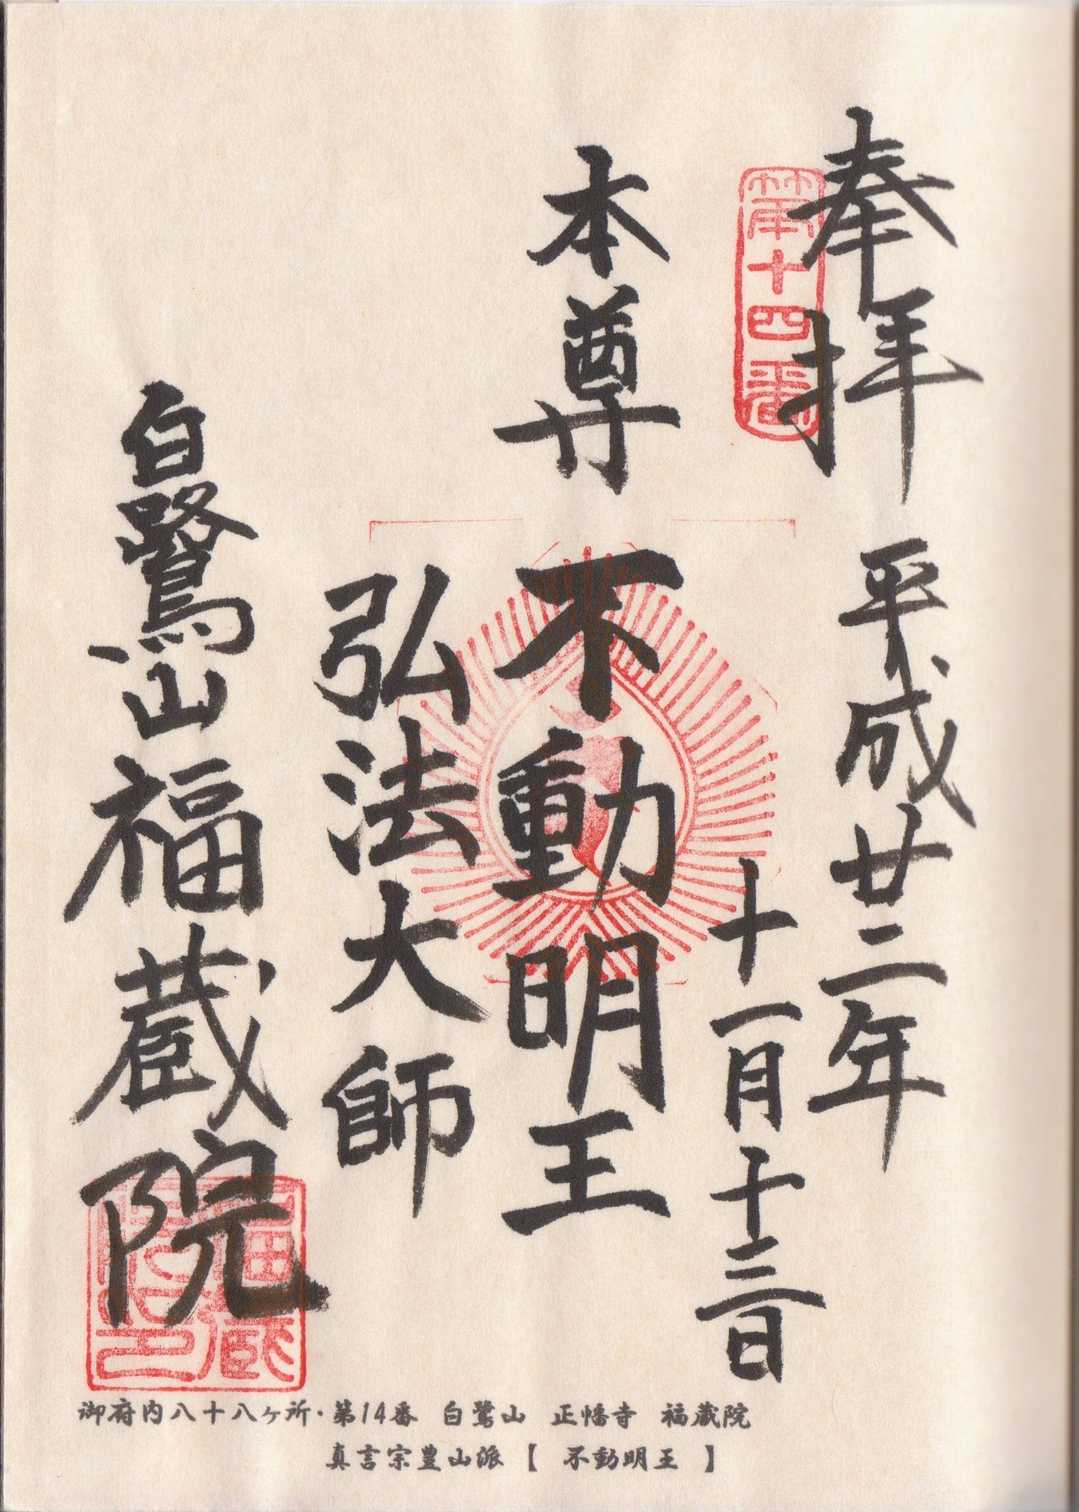 奉拝
平成廿二年
第十四番
十一月十三日
本尊
不動明王
弘法大師
白鷺山福蔵院
福蔵院印
御府内八十八ヶ所・第14番 白鷺山 正幡寺 福蔵院
真言宗豊山派【 不動明王 】